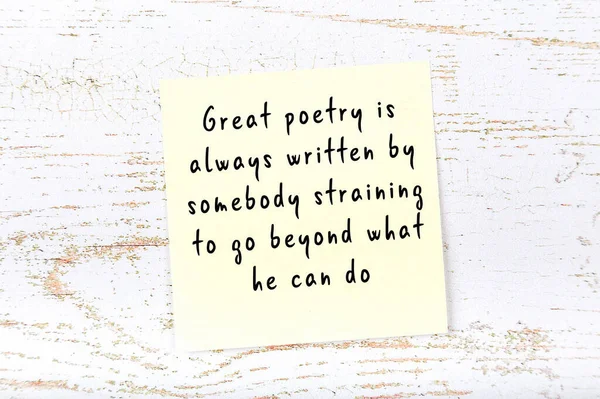 Great poetry is
always written by
somebody straining
to go beyond what
he can do